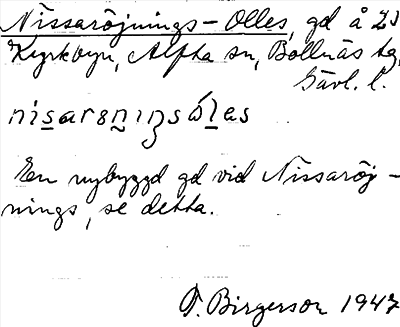 Nissaröjnings-Olles, gd å 23
Kyrkbyn, Alfta sn, Bollnäs tg,
Gävl. l.
nisarsnıŋsól̲as
En nybyggd gd vid Nissaröj-
nings, se detta.
F. Birgerson 1947